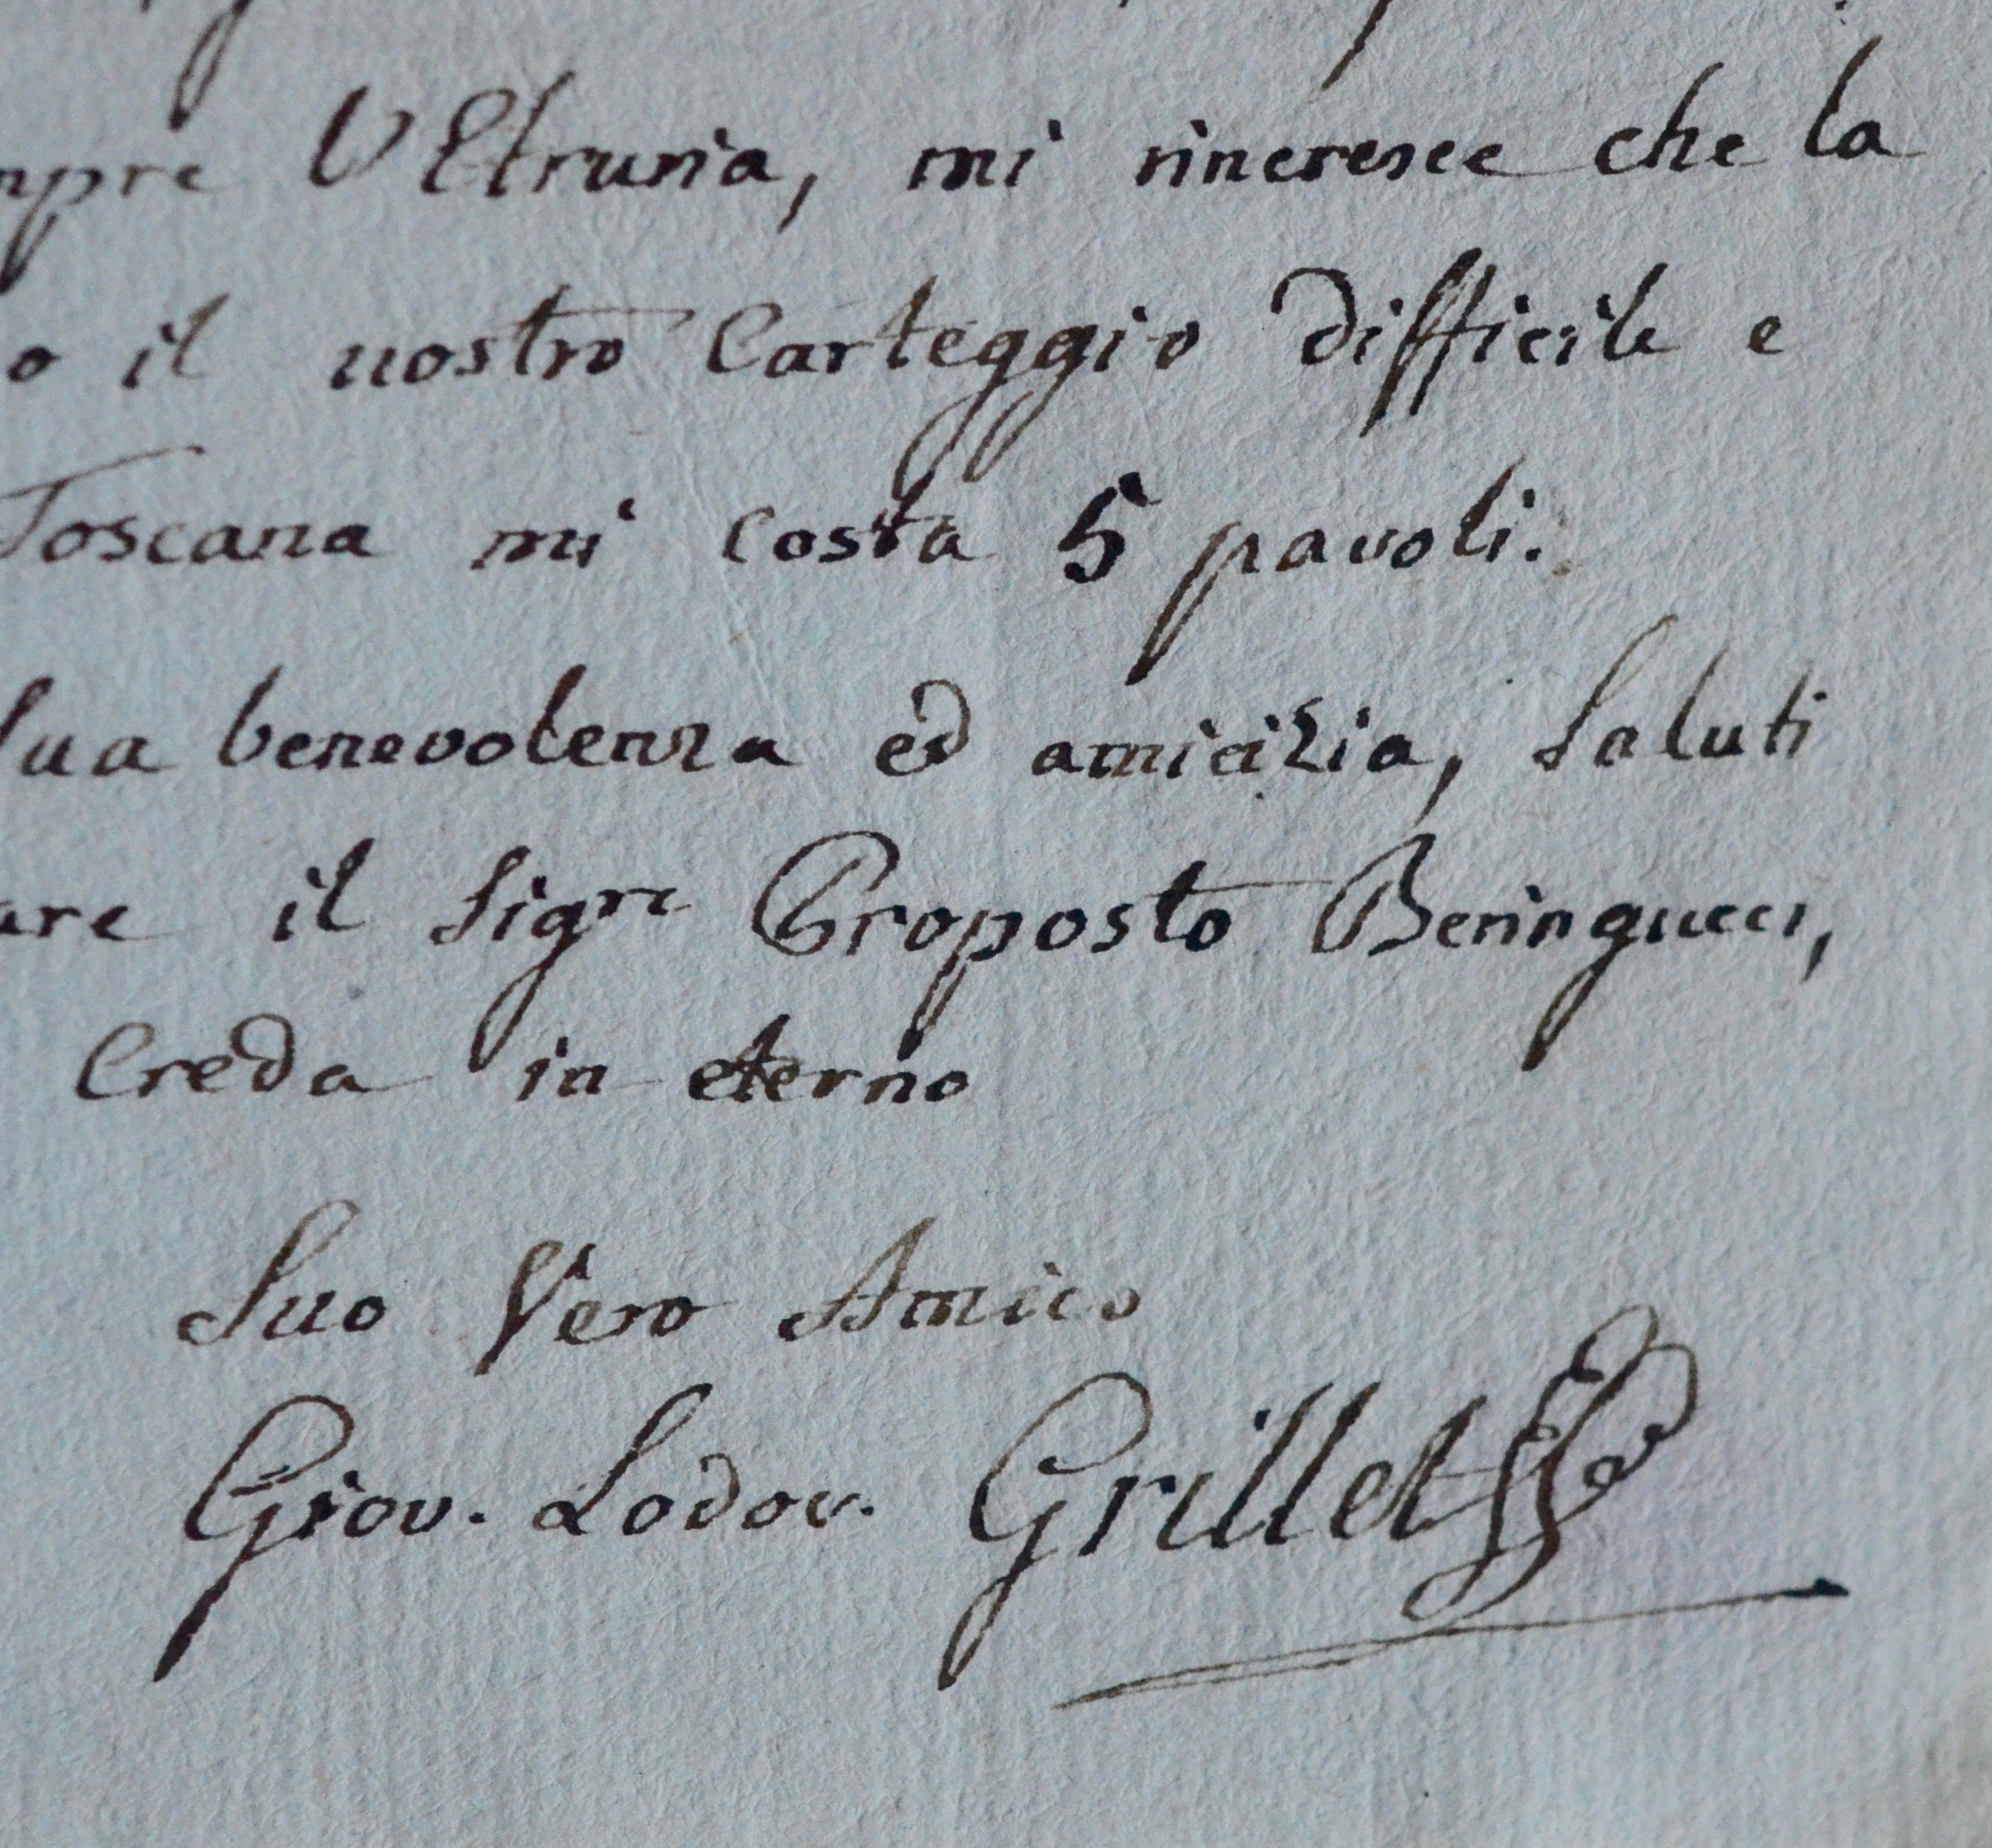 mpre l'Etruria, mi rincresce che la
o il nostro Carteggio difficile e
Toscana mi costa 5 pavoli.
Sua benevolenza ed amicizia, Saluti
are il Sigre Proposto Beringucci,
Creda in eterno
Suo Vero Amico
Giov. Lodov. Grillet